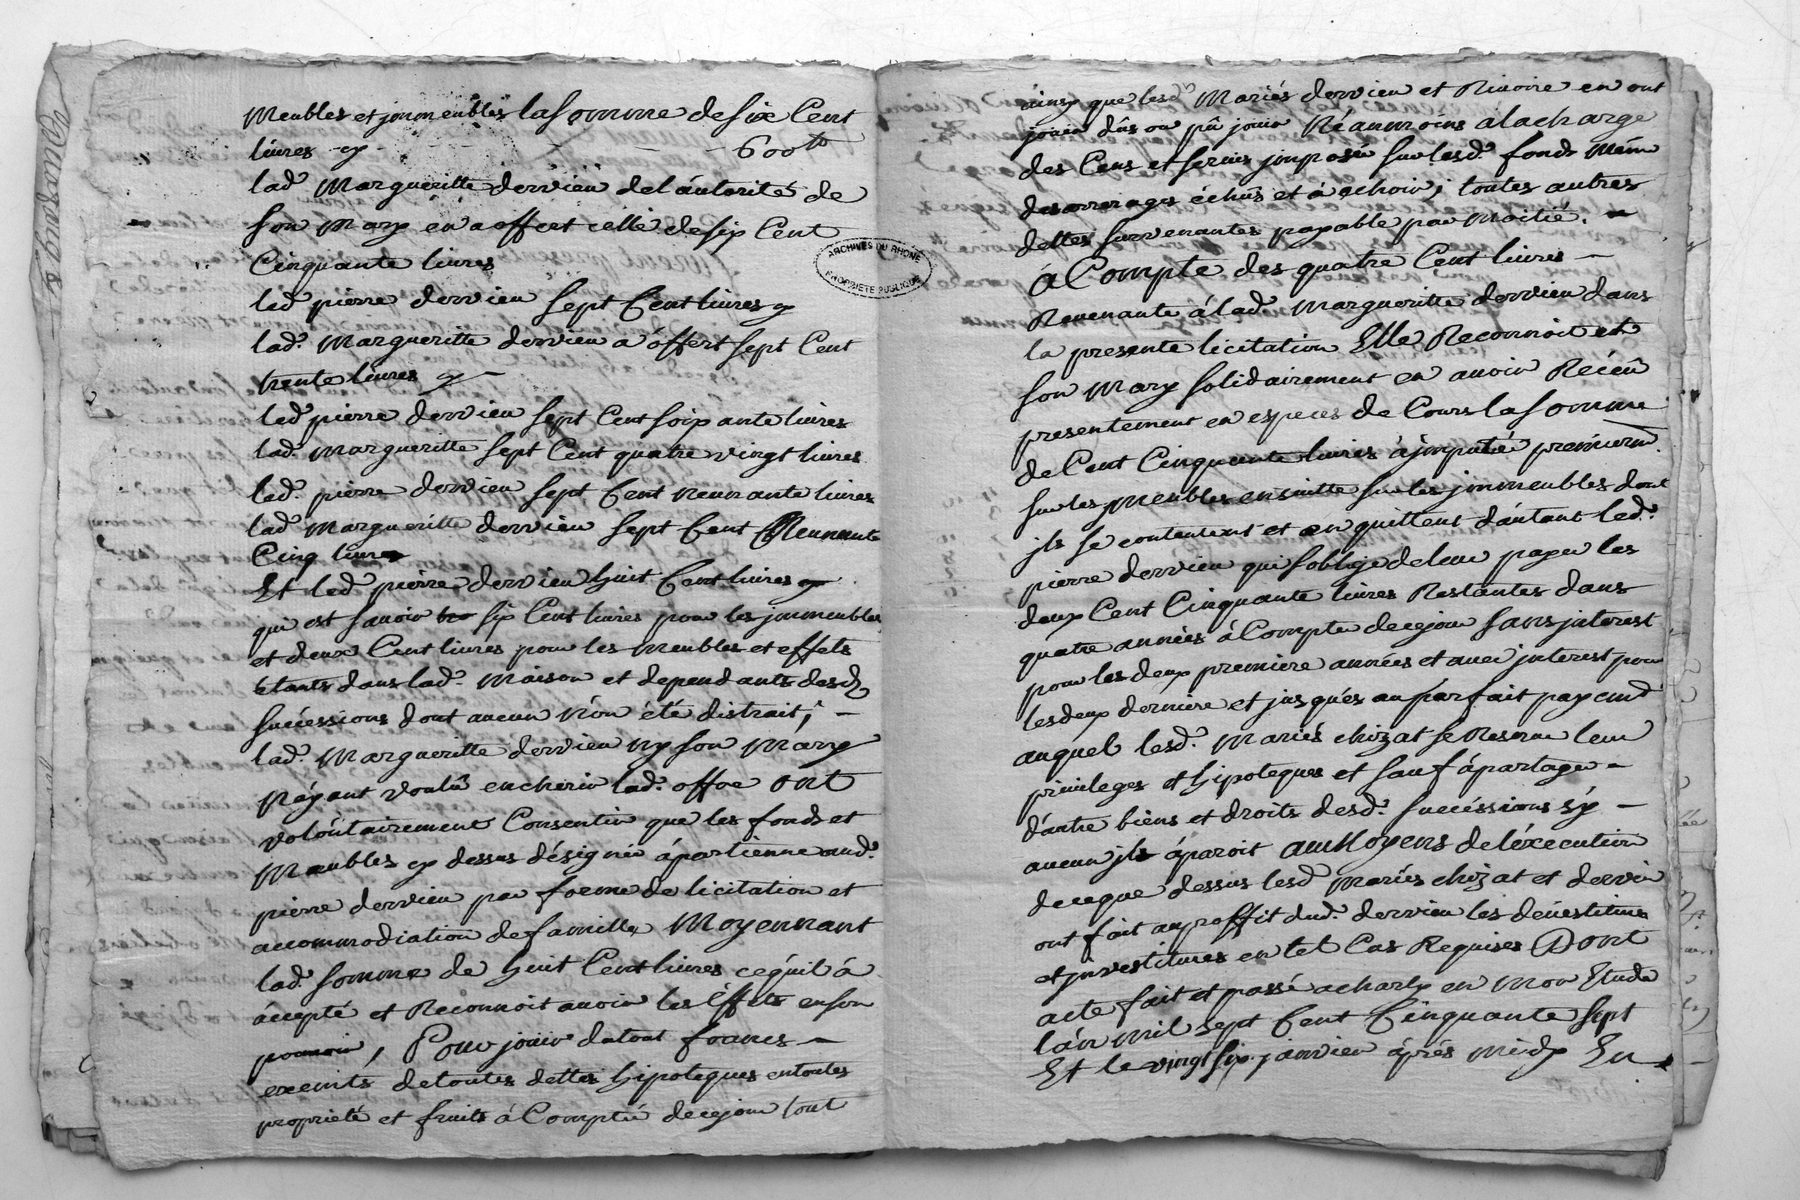 Meubles et jmmeubles la Somme de six Cent
livres cy - - - 600 tt
lad.e Margueritte dervieu de l'autorité de
Son Mary en a offert celle de six Cent
Cinquante livres
led. pierre dervieu Sept Cent livres cy
lad.e Margueritte dervieu a offert Sept Cent
trente livres cy -
led. pierre dervieu Sept Cent Soixante livres
lad.e Margueritte Sept Cent quatre vingt livres
led. pierre dervieu Sept Cent Neuvante livres
lad.e Margueritte dervieu Sept Cent Neuvante
Cinq livres
Et led. pierre dervieu huit Cent livres cy
qui est Savoir six Cent livres pour les jmmeubles
et deux Cent livres pour les Meubles et effets
Etants dans lad.e Maison et dependants desd.
Successions dont aucun N'on été distrait, -
lad.e Margueritte dervieu Ny Son Mary
N'ayant voulû encherir lad.e offre ont
volontairement Consentir que les fonds et
Meubles cy dessus désigné apartienne aud.
pierre dervieu par forme de licitation et
accommodiation de famille, Moyennant
lad.e Somme de huit Cent livres ce qu'il á
accepté et Reconnoit avoir les Effets en Son
pouvoir, Pour jouir du tout francs -
exemts de toutes dettes hipoteques en toutes
propriété et fruits á Compté de ce jour tout
ARCHIVES DU RHONE
PROPRIETE PUBLIQUE
ainsy que lesd. Mariés dervieu et Rivoire en ont
jouir dûs ou pû jouir Néanmoins a la charge
des Cens et Servis jmposés Sur lesd. fonds Mém
des arrerages échûs et á echoir, toutes autres
dettes Survenantes payable par Moitié. -
A Compte des quatre Cent livres -
Revenante á lad.e Margueritte dervieu dans
la presente licitation Elle Reconnoit et
Son Mary Solidairement en avoir Récéû
presentement en especes de Cours la Somme
de Cent Cinquante livres á jmputé premierm.t
Sur les Meubles ensuitte Sur les jmmeubles dont
jls Se contentent et en quittent d'autant led.
pierre dervieu qui S'oblige de leur payer les
deux Cent Cinquante livres Restantes dans
quatre années á Compte de ce jour Sans jnterest
pour les deux premiere années et avec jnterest pour
les deux derniere et jusqués au parfait payem.t
auquel lesd. Mariés chizat Se Reserve leur
privileges et hipoteques et Sauf á partager -
d'autre biens et droits desd. Succéssions S'y -
aucun jls aparoit au Moyens de l'éxecution
de ce que dessus lesd. Mariés chizat et dervieu
ont fait au proffit dud. dervieu les dévestitures
et jnvestitures en tel Cas Requises Dont
acte fait et passé a charly en Mon Etude
l'an Mil Sept Cent Cinquante Sept
Et le vingt Six janvier aprés Midy En